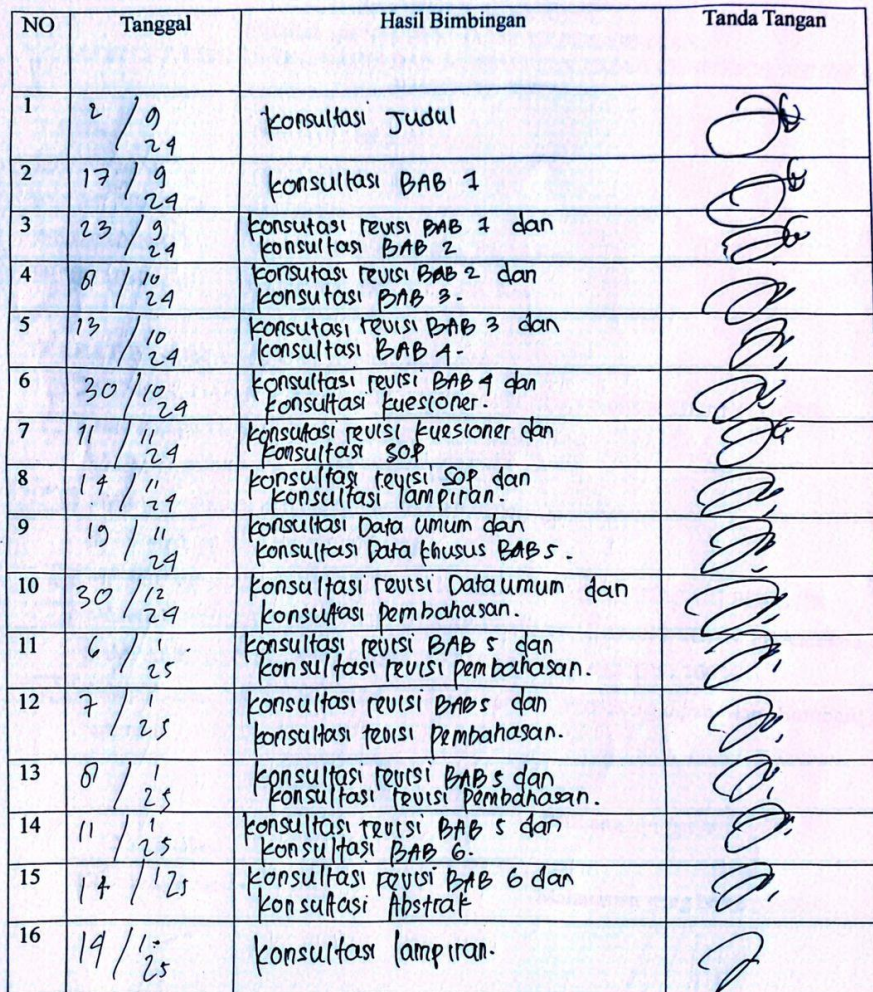 NO Tanggal Hasil Bimbingan Tanda Tangan
1 2/9 24 konsultasi Judul
2 17/9 24 konsultasi BAB 1
3 23/9 24 konsutasi revisi BAB 1 dan
konsultasi BAB 2
4 /10 24 konsutasi revisi BAB 2 dan
konsutasi BAB 3.
5 13/10 24 konsutasi revisi BAB 3 dan
konsultasi BAB 4.
6 30/10 24 konsultasi revisi BAB 4 dan
konsultasi kuesioner.
7 11/11 24 konsultasi revisi kuesioner dan
konsultasi SOP.
8 14/11 24 konsultasi revisi SOP dan
konsultasi lampiran.
9 /11 24 konsultasi Data umum dan
konsultasi Data khusus BAB 5.
10 30/12 24 konsultasi revisi Data umum dan
konsultasi pembahasan.
11 6/1 25 konsultasi revisi BAB 5 dan
konsultasi revisi pembahasan.
12 7/1 25 konsultasi revisi BAB 5 dan
konsultasi revisi Pembahasan.
13 /1 25 konsultasi revisi BAB 5 dan
konsultasi revisi pembahasan.
14 11/1 25 konsultasi revisi BAB 5 dan
konsultasi BAB 6.
15 14/1 25 konsultasi revisi BAB 6 dan
konsultasi Abstrak
16 /1 25 konsultasi lampiran.